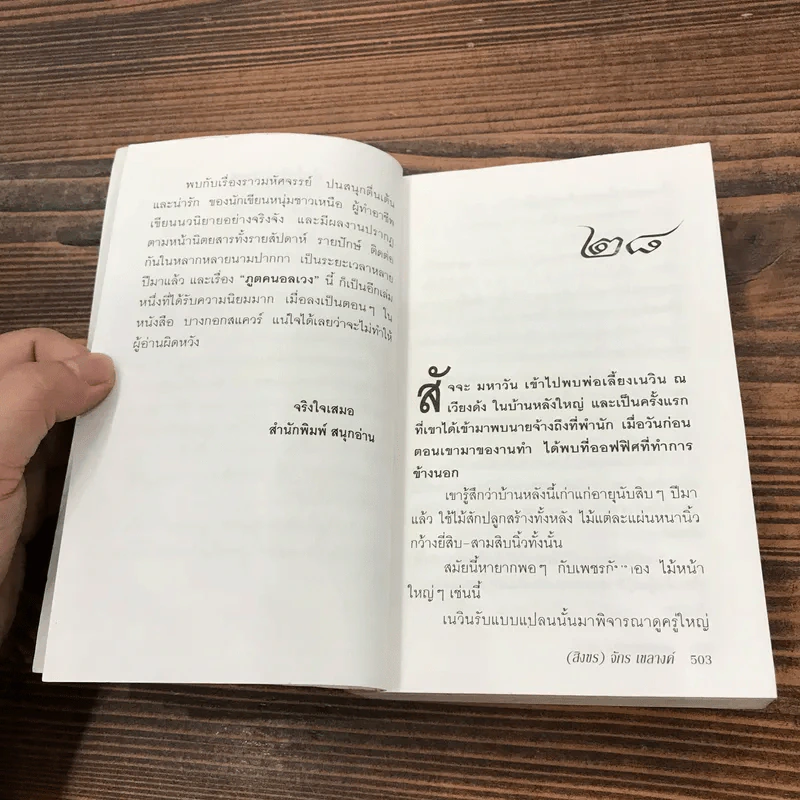 พบกับเรื่องราวมหัศจรรย์ ปนสนุกตื่นเต้น
และน่ารัก ของนักเขียนหนุ่มชาวเหนือ ผู้ทำอาชีพ
เขียนนวนิยายอย่างจริงจัง และมีผลงานปรากฏ
ตามหน้านิตยสารทั้งรายสัปดาห์ รายปักษ์ ติดต่อ
กันในหลากหลายนามปากกา เป็นระยะเวลาหลาย
ปีมาแล้ว และเรื่อง “ภูตคนอลเวง” นี้ ก็เป็นอีกเล่ม
หนึ่งที่ได้รับความนิยมมาก เมื่อลงเป็นตอนๆ ใน
หนังสือ บางกอกสแควร์ แน่ใจได้เลยว่าจะไม่ทำให้
ผู้อ่านผิดหวัง
จริงใจเสมอ
สำนักพิมพ์ สนุกอ่าน
๒๘
สัจจะ มหาวัน เข้าไปพบพ่อเลี้ยงเนวิน ณ
เวียงด้ง ในบ้านหลังใหญ่ และเป็นครั้งแรก
ที่เขาได้เข้ามาพบนายจ้างถึงที่พำนัก เมื่อวันก่อน
ตอนเขามาของานทำ ได้พบที่ออฟฟิศที่ทำการ
ข้างนอก
เขารู้สึกว่าบ้านหลังนี้เก่าแก่อายุนับสิบๆ ปีมา
แล้ว ใช้ไม้สักปลูกสร้างทั้งหลัง ไม้แต่ละแผ่นหนานิ้ว
กว้างยี่สิบ-สามสิบนิ้วทั้งนั้น
สมัยนี้หายากพอๆ กับ ไม้หน้า
ใหญ่ๆ เช่นนี้
เนวินรับแบบแปลนนั้นมาพิจารณาดูครู่ใหญ่
(สิงขร) จักร เขลางค์ 503